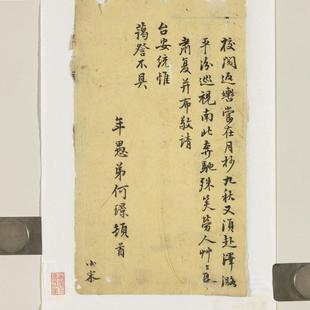 校閱返轡當在月杪九秋又須赴澤潞
平汾巡視南北奔馳殊笑勞人艸〻耳
肅复并布敬請
台安統惟
藹詧不具
年愚弟何璟頓首
小宋